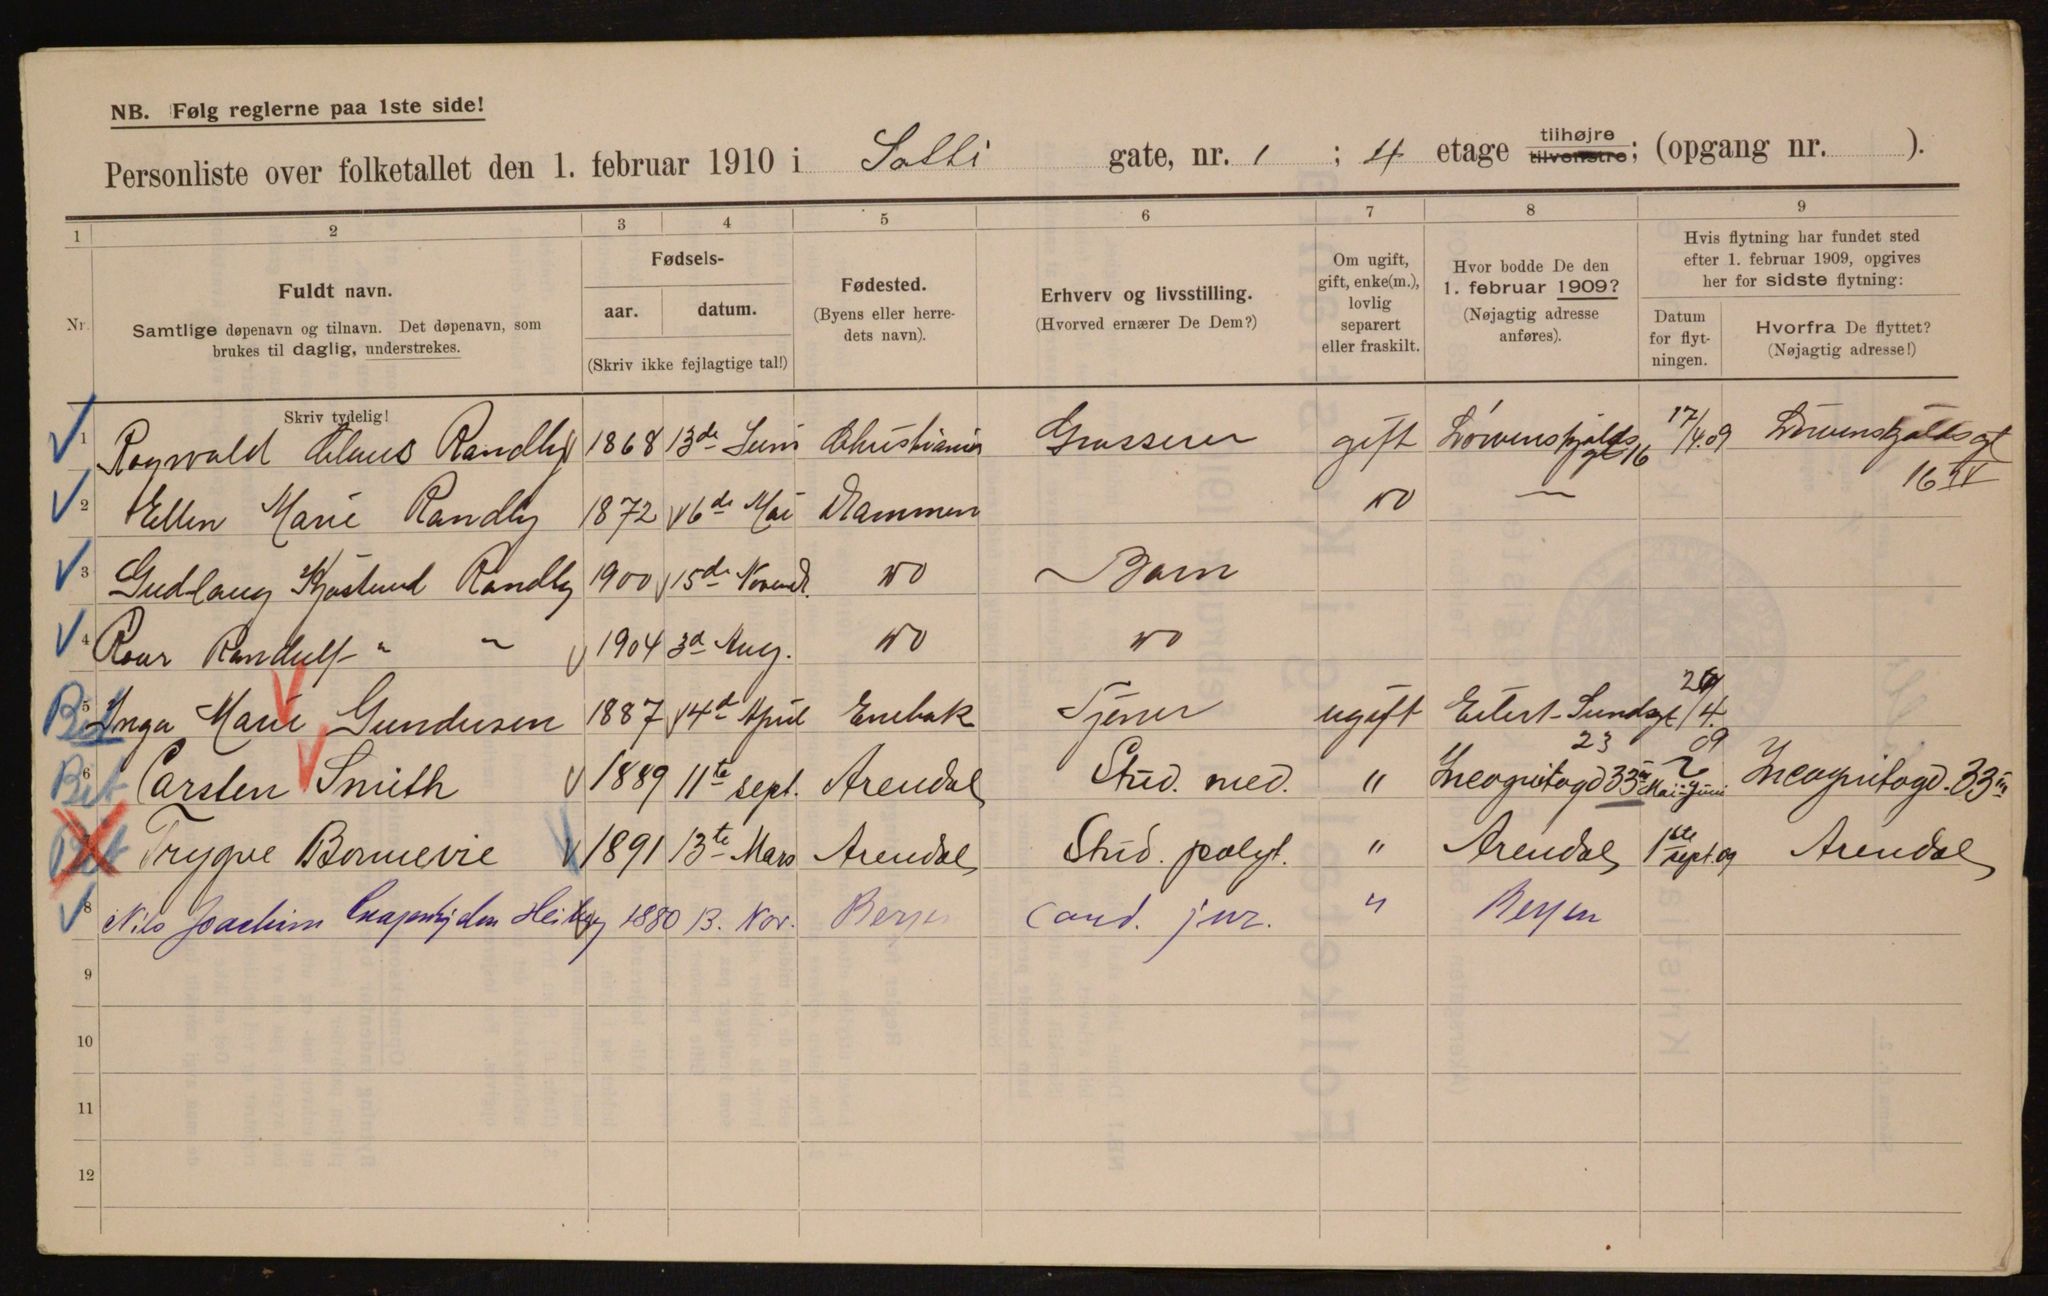 NB. Følg reglerne paa 1ste side!
Personliste over folketallet den 1. februar 1910 i Solli gate, nr. 1 ; 4 etage tilhøjre tilvenstre; (opgang nr. ).
1 2 3 4 5 6 7 8 9
Nr.
Fuldt navn.
Samtlige døpenavn og tilnavn. Det døpenavn, som
brukes til daglig, understrekes.
Skriv tydelig!
Fødsels-
aar. datum.
(Skriv ikke fejlagtige tal!)
Fødested.
(Byens eller herre-
dets navn).
Erhverv og livsstilling.
(Hvorved ernærer De Dem?)
Om ugift,
gift, enke(m.),
lovlig
separert
eller fraskilt.
Hvor bodde De den
1. februar 1909?
(Nøjagtig adresse
anføres).
Hvis flytning har fundet sted
efter 1. februar 1909, opgives
her for sidste flytning:
Datum
for flyt-
ningen.
Hvorfra De flyttet?
(Nøjagtig adresse!)
1 Ragwald Claus Randby 1868 13de Juni Christiania Grosserer gift Løvenskjolds gt 16 17/4.09 Løvenskjolds gt 16 IV
2 Ellen Marie Randby 1872 6de Mai Drammen do —
3 Gudlaug Randby 1900 15de Novembr. do Barn
4 Roar Randulf " " 1904 3d Aug. do do
5 Inga Marie Gundersen 1887 14d April Enebak Tjener ugift Eilert Sundsgt 23 /4. 09
Bet
6 Carsten Smith 1889 11te sept. Arendal Stud. med. " Incognitogd 33 III Mai-Juni Incognitogd. 33 III
Bet
Trygve Bonnevie 1891 13te Mars Arendal Stud. polyt. " Arendal 1ste sept. 09 Arendal
Bet
8 Nils Joachim den Heiberg 1880 13. Nov. Bergen Cand. jur. " Bergen
9
10
11
12